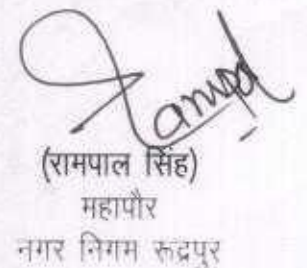 Rampal
(रामपाल सिंह)
महापौर
नगर निगम रूद्रपुर